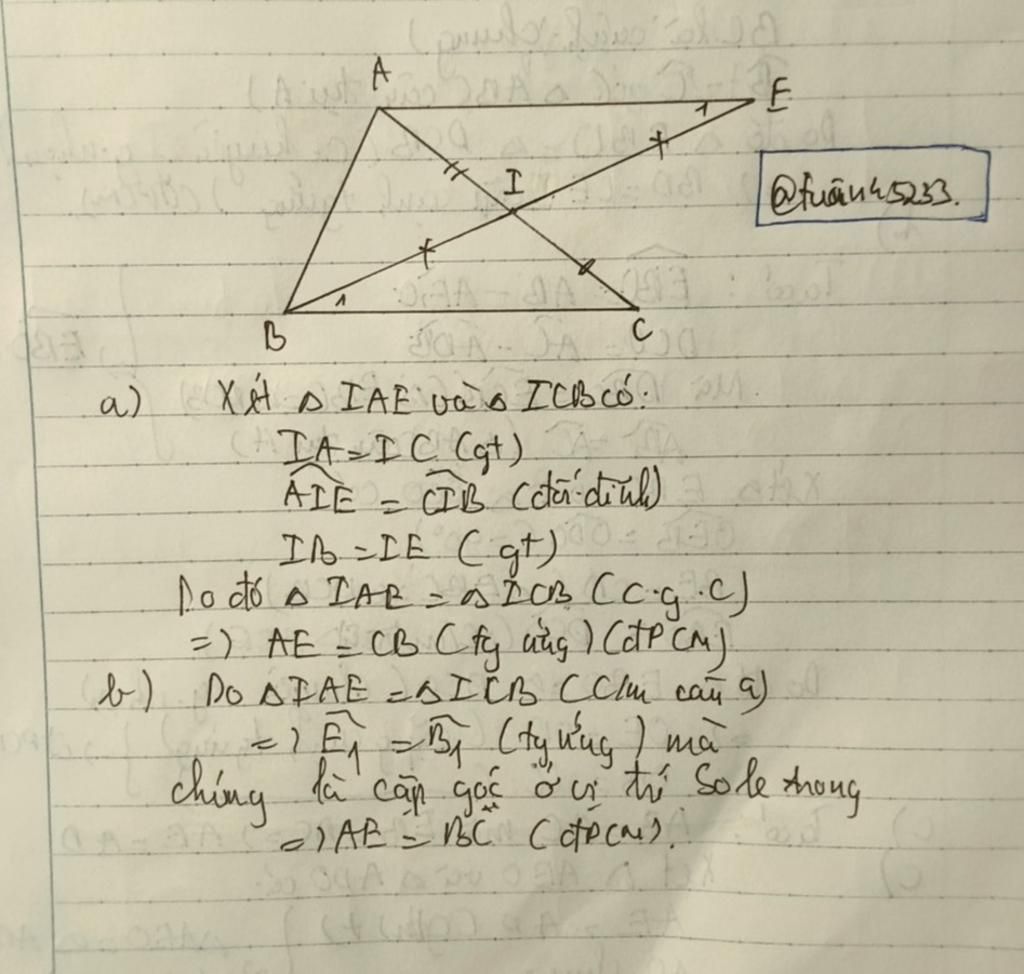 A
E
1
I
@tuấn45233.
1
B
C
a) Xét △ IAE và △ ICB có:
IA = IC (gt)
AIE = CIB (đối đỉnh)
IB = IE (gt)
Do đó △ IAE = △ ICB (c.g.c)
=) AE = CB (tg ứng) (đPCM)
b) Do △IAE = △ICB (C/m câu a)
=) E1 = B1 (tg ứng) mà
chúng là cặp góc ở vị trí so le trong
=) AE = BC (đPCM).